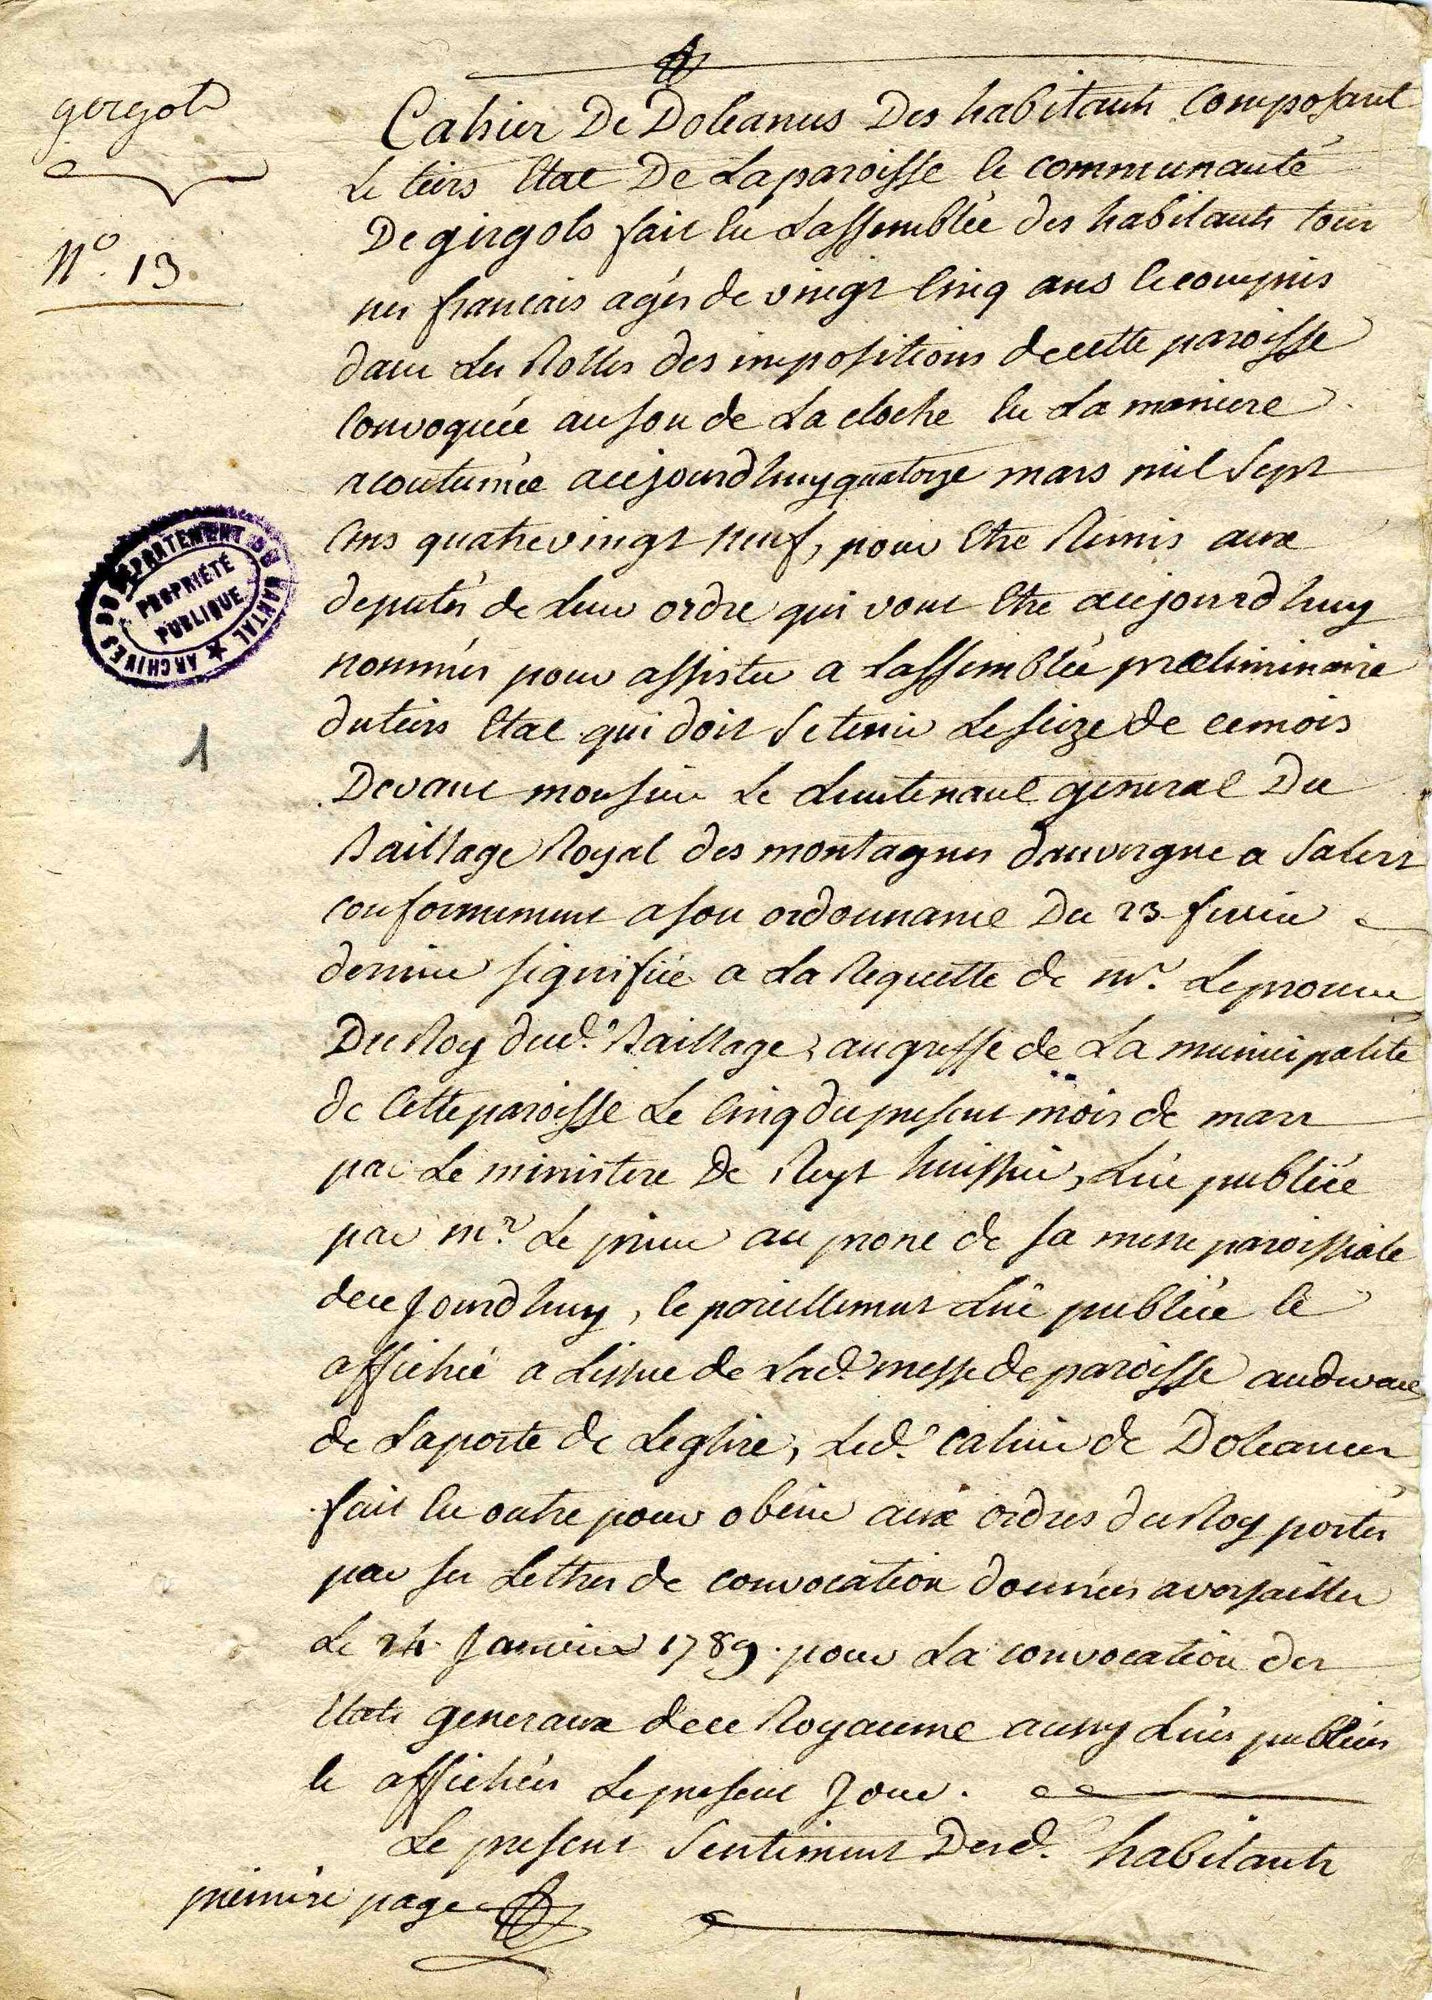 girgols
N.° 13.
Cahier De Doleances Des habitants Composant
Le tiers Etat De La paroisse et communauté
De girgols fait en Lassemblée des habitants tous
nes francais agés de vingt Cinq ans et compris
dans Les Rolles des impositions de cette paroisse
Convoquée au son de La cloche en La maniere
acoutumée aujourdhuy quatorze mars mil Sept
Cens quatrevingt neuf, pour Etre Remis aux
deputés de Leur ordre qui vont Etre aujourdhuy
nommés pour assister a Lassemblée præliminaire
du tiers Etat qui doit Se tenir Le Seize de ce mois
Devant monsieur Le Lieutenant general Du
Baillage Royal des montagnes dauvergne a Salers
conformement a son ordonnance Du 23 fevrier
dernier signifiée a La Requette de mr. Le procureur
Du Roy dud. Baillage, au greffe de La municipalité
de Cette paroisse Le Cinq du present mois de mars
par Le ministere De Reyt huissier, Lüe publiée
par mr. Le prieur au prone de sa messe paroissiale
de ce jourdhuy, et pareillement Lüe publiée et
affichée a Lissue de Lad. messe de paroisse au devant
de La porte de Leglise, Led. Cahier de Doleances
fait En outre pour obéir aux ordres du Roy portés
par ses Lettres de convocation données a versailles
Le 24 Janvier 1789. pour La convocation des
Etats generaux de ce Royaume aussy Lües publiées
et affichées Le present Jour.
Le present Sentiment Desd. habitants
premiére page
ARCHIVES DU DEPARTEMENT DU CANTAL
PROPRIÉTÉ
PUBLIQUE
1